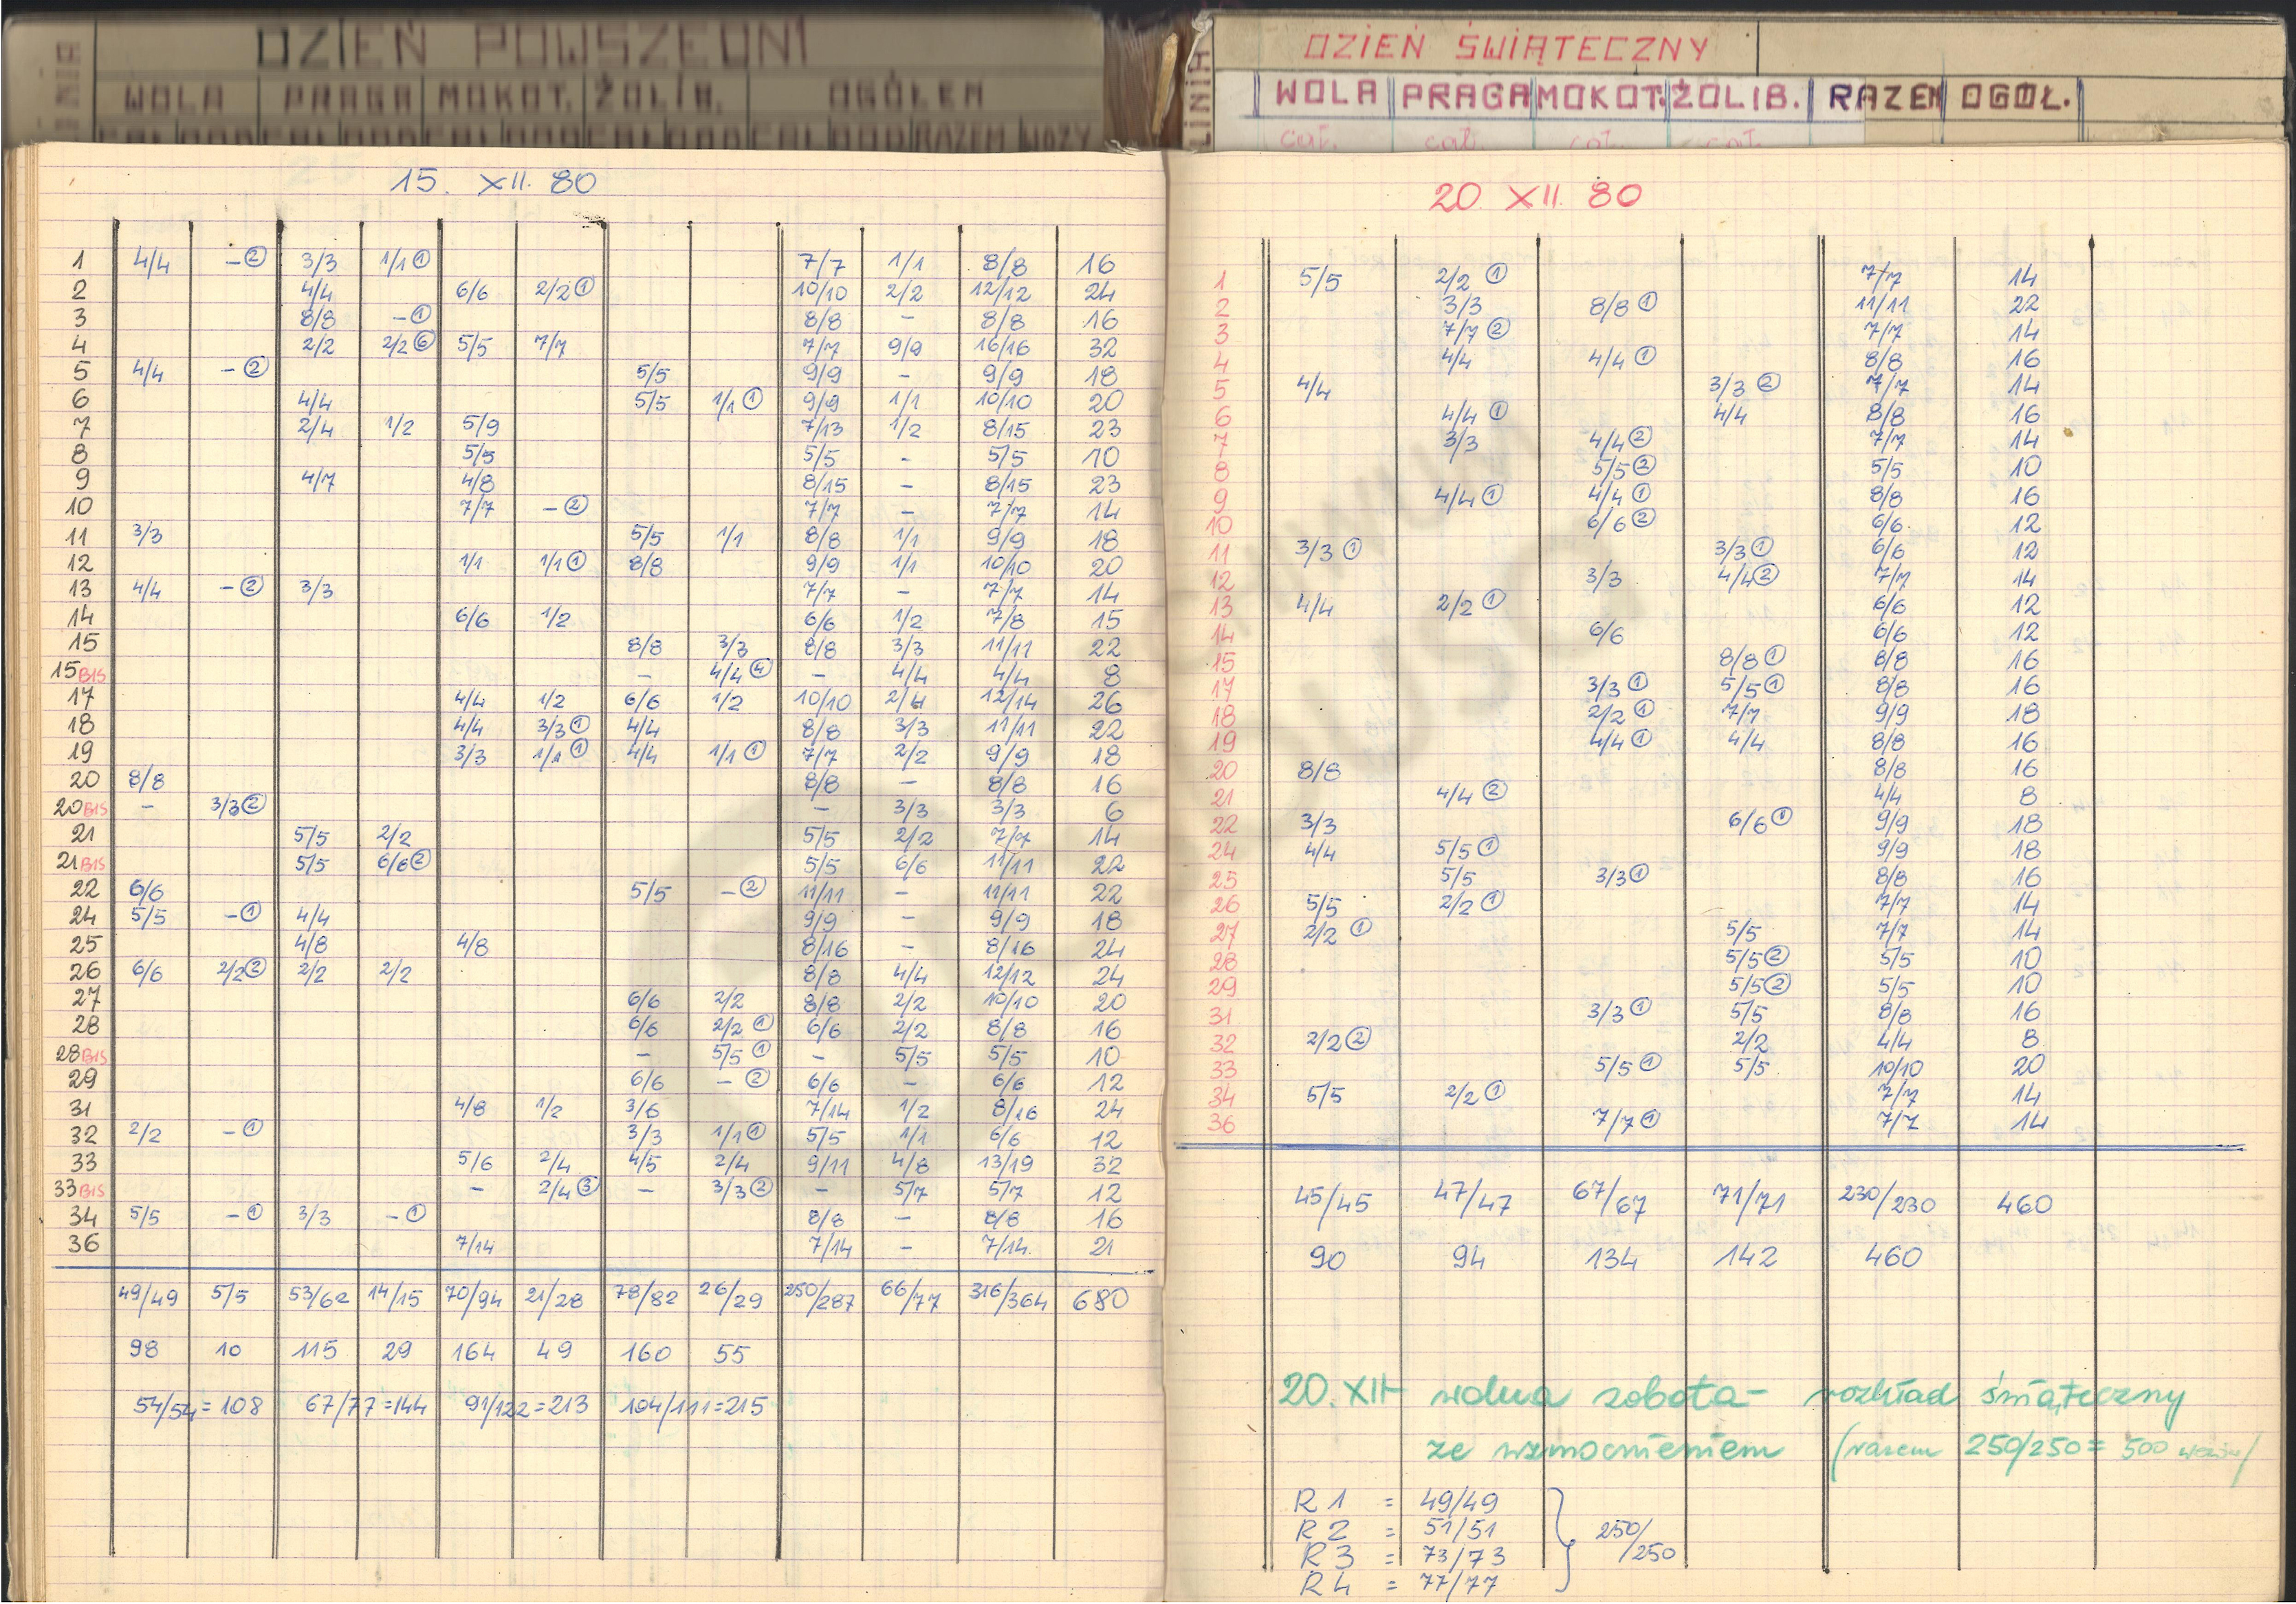 DZIEŃ POWSZEDNI
LINIA WOLA PRAGA MOKOT. ŻOLIB. OGÓŁEM
CAŁ DOD CAŁ DOD CAŁ DOD CAŁ DOD CAŁ DOD RAZEM WOZY
15. XII. 80
1 4/4 -② 3/3 1/1① 7/7 1/1 8/8 16
2 4/4 6/6 2/2① 10/10 2/2 12/12 24
3 8/8 -① 8/8 - 8/8 16
4 2/2 2/2⑥ 5/5 7/7 7/7 9/9 16/16 32
5 4/4 -② 5/5 9/9 - 9/9 18
6 4/4 5/5 1/1① 9/9 1/1 10/10 20
7 2/4 1/2 5/9 7/13 1/2 8/15 23
8 5/5 5/5 - 5/5 10
9 4/7 4/8 8/15 - 8/15 23
10 7/7 -② 7/7 - 7/7 14
11 3/3 5/5 1/1 8/8 1/1 9/9 18
12 1/1 1/1① 8/8 9/9 1/1 10/10 20
13 4/4 -② 3/3 7/7 - 7/7 14
14 6/6 1/2 6/6 1/2 7/8 15
15 8/8 3/3 8/8 3/3 11/11 22
15BIS - 4/4④ - 4/4 4/4 8
17 4/4 1/2 6/6 1/2 10/10 2/4 12/14 26
18 4/4 3/3① 4/4 8/8 3/3 11/11 22
19 3/3 1/1① 4/4 1/1① 7/7 2/2 9/9 18
20 8/8 8/8 - 8/8 16
20BIS - 3/3② - 3/3 3/3 6
21 5/5 2/2 5/5 2/2 7/7 14
21BIS 5/5 6/6② 5/5 6/6 11/11 22
22 6/6 5/5 -② 11/11 - 11/11 22
24 5/5 -① 4/4 9/9 - 9/9 18
25 4/8 4/8 8/16 - 8/16 24
26 6/6 2/2② 2/2 2/2 8/8 4/4 12/12 24
27 6/6 2/2 8/8 2/2 10/10 20
28 6/6 2/2① 6/6 2/2 8/8 16
28BIS - 5/5① - 5/5 5/5 10
29 6/6 -② 6/6 - 6/6 12
31 4/8 1/2 3/6 7/14 1/2 8/16 24
32 2/2 -① 3/3 1/1① 5/5 1/1 6/6 12
33 5/6 2/4 4/5 2/4 9/11 4/8 13/19 32
33BIS - 2/4③ - 3/3② - 5/7 5/7 12
34 5/5 -① 3/3 -① 8/8 - 8/8 16
36 7/14 7/14 - 7/14 21
49/49 5/5 53/62 14/15 70/94 21/28 78/82 26/29 250/287 66/77 316/364 680
98 10 115 29 164 49 160 55
54/54=108 67/77=144 91/122=213 104/111=215
DZIEŃ ŚWIĄTECZNY
LINIA WOLA PRAGA MOKOT. ŻOLIB. RAZEM OGÓŁ.
cał. cał. cał. cał.
20. XII. 80
1 5/5 2/2① 7/7 14
2 3/3 8/8① 11/11 22
3 7/7② 7/7 14
4 4/4 4/4① 8/8 16
5 4/4 3/3② 7/7 14
6 4/4① 4/4 8/8 16
7 3/3 4/4② 7/7 14
8 5/5② 5/5 10
9 4/4① 4/4① 8/8 16
10 6/6② 6/6 12
11 3/3① 3/3① 6/6 12
12 3/3 4/4② 7/7 14
13 4/4 2/2① 6/6 12
14 6/6 6/6 12
15 8/8① 8/8 16
17 3/3① 5/5① 8/8 16
18 2/2① 7/7 9/9 18
19 4/4① 4/4 8/8 16
20 8/8 8/8 16
21 4/4② 4/4 8
22 3/3 6/6① 9/9 18
24 4/4 5/5① 9/9 18
25 5/5 3/3① 8/8 16
26 5/5 2/2① 7/7 14
27 2/2① 5/5 7/7 14
28 5/5② 5/5 10
29 5/5② 5/5 10
31 3/3① 5/5 8/8 16
32 2/2② 2/2 4/4 8
33 5/5① 5/5 10/10 20
34 5/5 2/2① 7/7 14
36 7/7① 7/7 14
45/45 47/47 67/67 71/71 230/230 460
90 94 134 142 460
20. XII- wolna sobota- rozkład świąteczny
ze wzmocnieniem (razem 250/250 = 500 wozów/
R1 = 49/49
R2 = 51/51
R3 = 73/73
R4 = 77/77
250/250